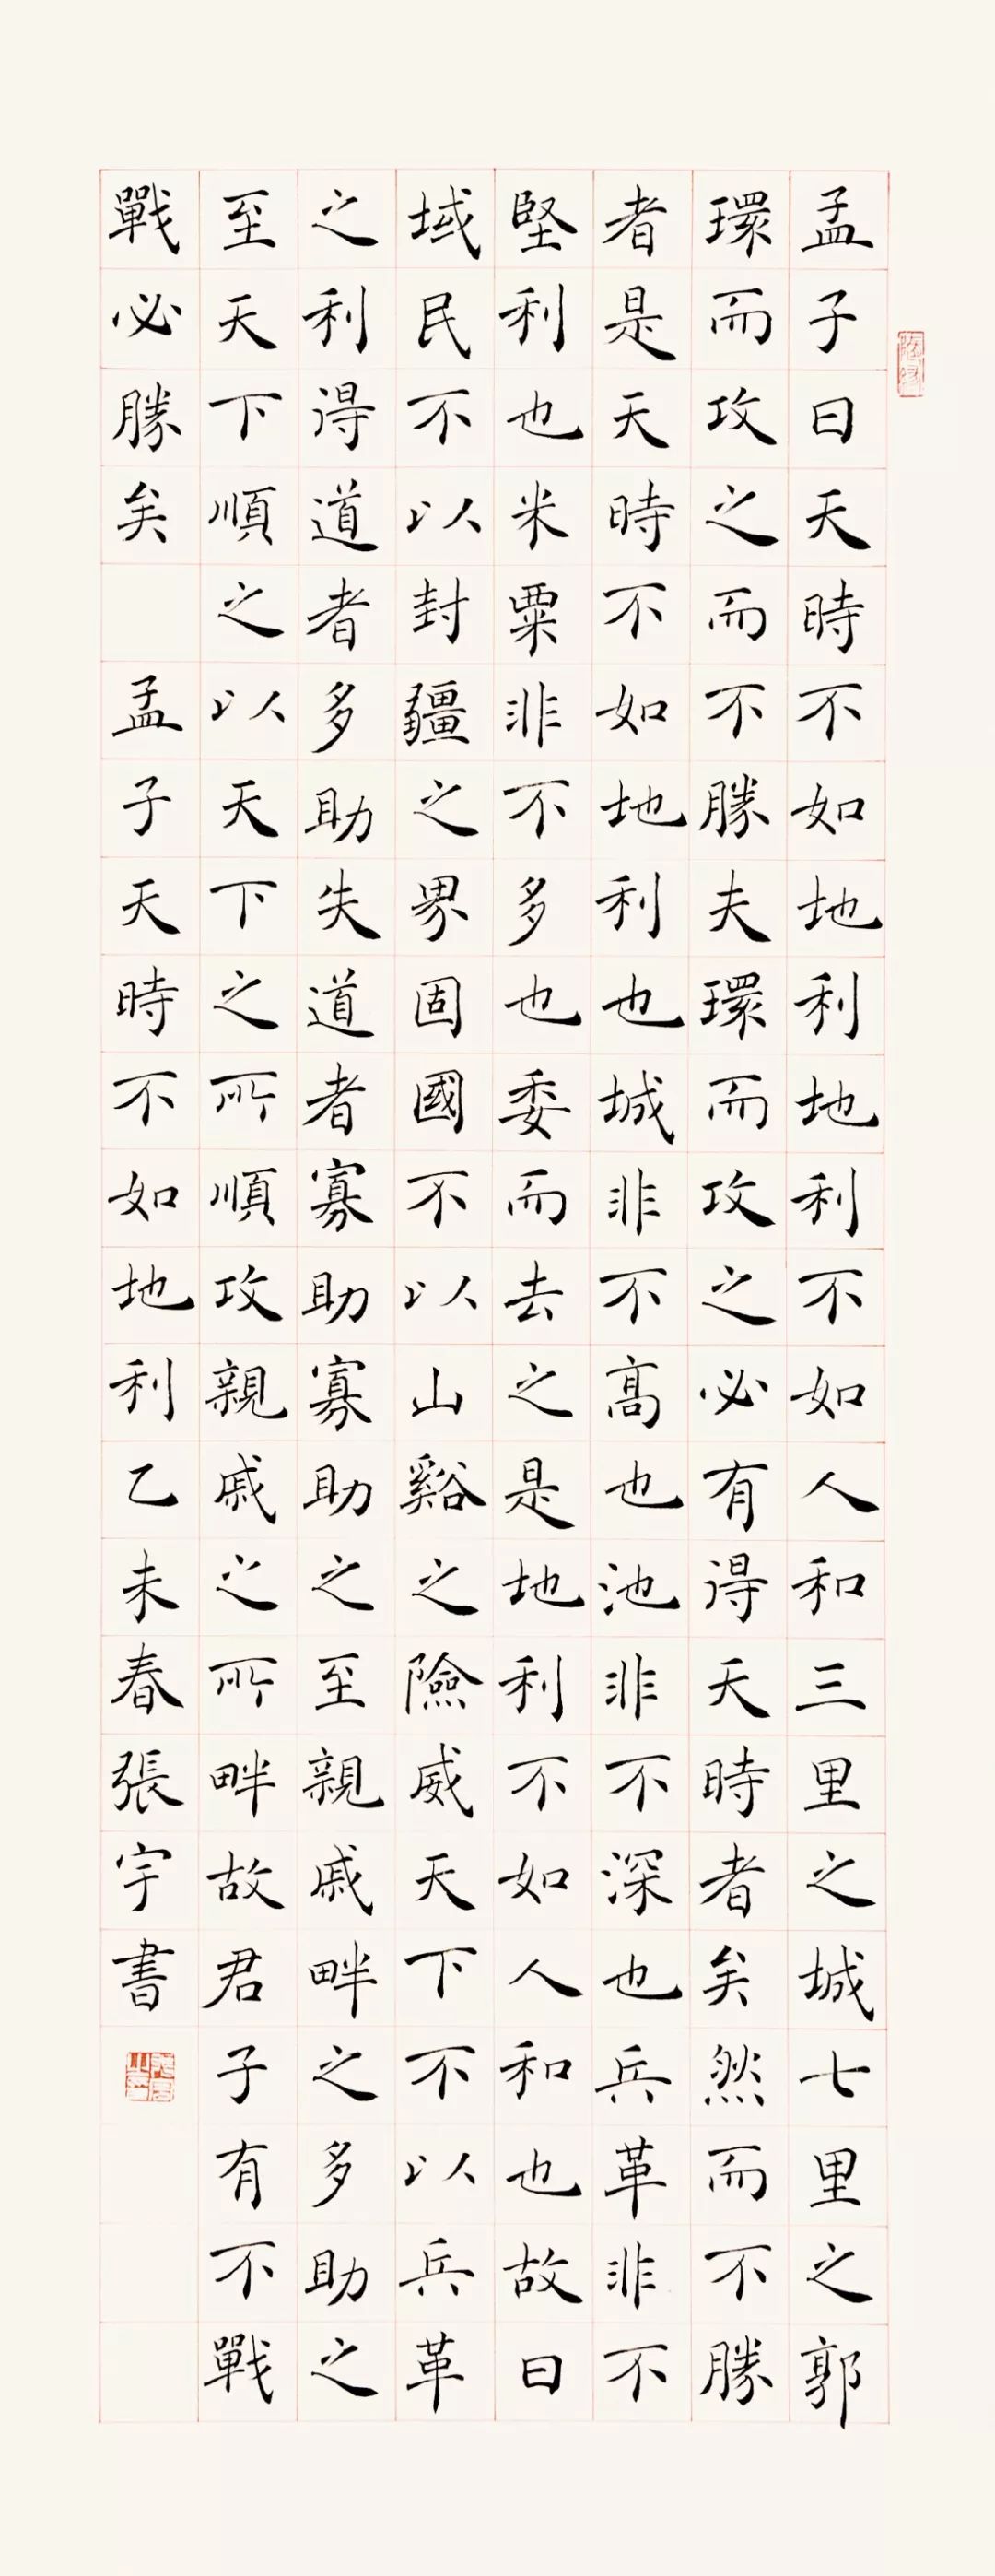 孟子曰天時不如地利地利不如人和三里之城七里之郭
環而攻之而不勝夫環而攻之必有得天時者矣然而不勝
者是天時不如地利也城非不高也池非不深也兵革非不
堅利也米粟非不多也委而去之是地利不如人和也故曰
域民不以封疆之界固國不以山谿之險威天下不以兵革
之利得道者多助失道者寡助寡助之至親戚畔之多助之
至天下順之以天下之所順攻親戚之所畔故君子有不戰
戰必勝矣 孟子天時不如地利乙未春張宇書